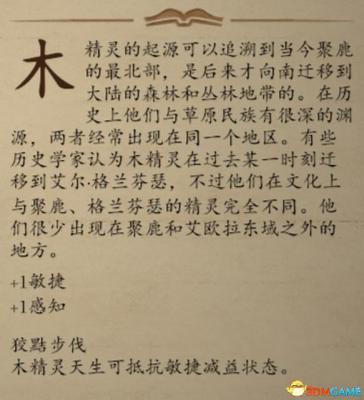 木精灵的起源可以追溯到当今聚鹿
的最北部,是后来才向南迁移到
大陆的森林和丛林地带的。在历
史上他们与草原民族有很深的渊
源,两者经常出现在同一个地区。有些
历史学家认为木精灵在过去某一时刻迁
移到艾尔·格兰芬瑟,不过他们在文化上
与聚鹿、格兰芬瑟的精灵完全不同。他
们很少出现在聚鹿和艾欧拉东域之外的
地方。
+1敏捷
+1感知
狡點步伐
木精灵天生可抵抗敏捷减益状态。
3DMGAME